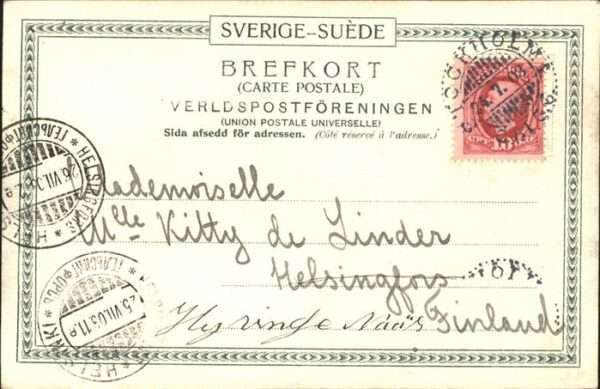 SVERIGE–SUÈDE
BREFKORT
(CARTE POSTALE)
VERLDSPOSTFÖRENINGEN
(UNION POSTALE UNIVERSELLE)
Sida afsedd för adressen. (Côté réservé à l'adresse.)
STOCKHOLM
Mademoiselle
Mlle Kitty de Linder
Helsingfors
Hyvinge
Finland
HELSINGFORS
ГЕЛЬСИНГФОРСЪ
26.VII.03
HELSINKI
ГЕЛЬСИНГФОРСЪ
25.VII.03.11